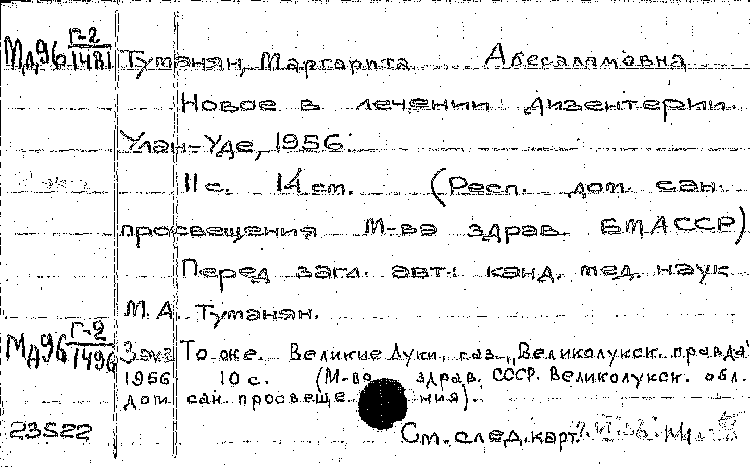 Мд96 Г-2/1481 Туманян, Маргарита Абесаломовна
Новое в лечении дизентерии.
Улан-Удэ, 1956.
11 с. 14 см. (Респ. дом сан.
просвещения М-ва здрав. БМАССР)
Перед загл. авт.: канд. мед. наук
М. А. Туманян.
Мд96 Г-2/1496 3 экз То же. Великие Луки, газ. „Великолукск. правда"
1956 10 с. (М-во здрав. СССР. Великолукск. обл.
дом сан. просвещения).
23522 См. след. карт.